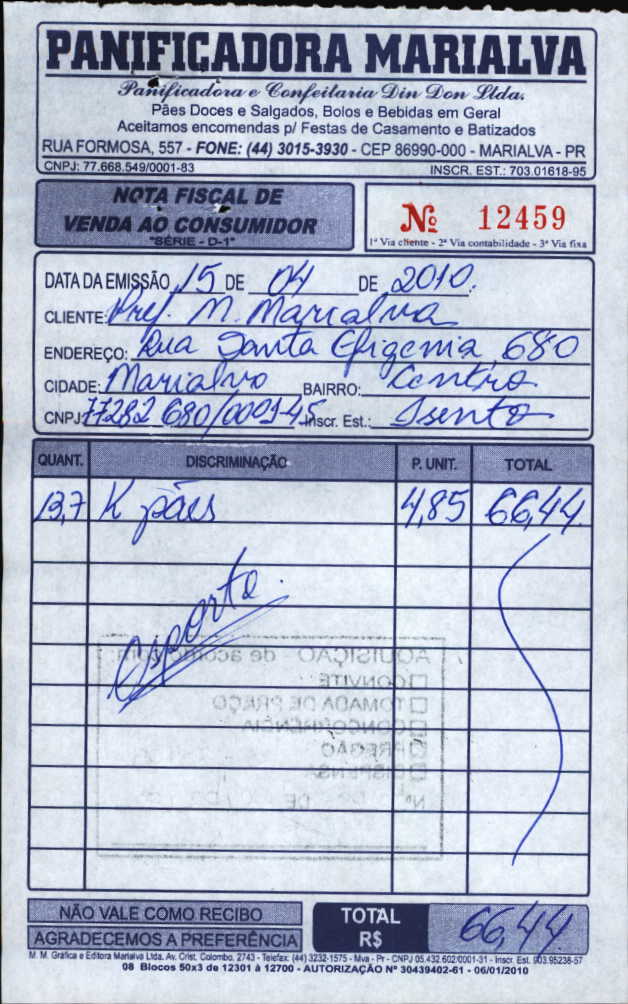 PANIFICADORA MARIALVA
Panificadora e Confeitaria Din Don Ltda.
Pães Doces e Salgados, Bolos e Bebidas em Geral
Aceitamos encomendas p/ Festas de Casamento e Batizados
RUA FORMOSA, 557 - FONE: (44) 3015-3930 - CEP 86990-000 - MARIALVA - PR
CNPJ: 77.668.549/0001-83 INSCR. EST.: 703.01618-95
NOTA FISCAL DE
VENDA AO CONSUMIDOR
"SÉRIE - D-1"
Nº 12459
1ª Via cliente - 2ª Via contabilidade - 3ª Via fixa
DATA DA EMISSÃO 15 DE 04 DE 2010.
CLIENTE: Pref. M. Marialva
ENDEREÇO: Rua Santa Efigenia, 680
CIDADE: Marialva BAIRRO: Centro
CNPJ: 77282 680/0001-45 Inscr. Est.: Isento
QUANT. DISCRIMINAÇÃO P. UNIT. TOTAL
13,7 K pães 4,85 66,44
esporte.
AQUISIÇÃO - de acordo com:
CONVITE
TOMADA DE PREÇO
CONCORRÊNCIA
PREGÃO
DISPENSA
Nº DE
NÃO VALE COMO RECIBO
AGRADECEMOS A PREFERÊNCIA
TOTAL R$ 66,44
M. M. Gráfica e Editora Marialva Ltda. Av. Crist. Colombo, 2743 - Telefax: (44) 3232-1575 - Mva - Pr - CNPJ 05.432.602/0001-31 - Inscr. Est. 903.95238-57
08 Blocos 50x3 de 12301 à 12700 - AUTORIZAÇÃO Nº 30439402-61 - 06/01/2010